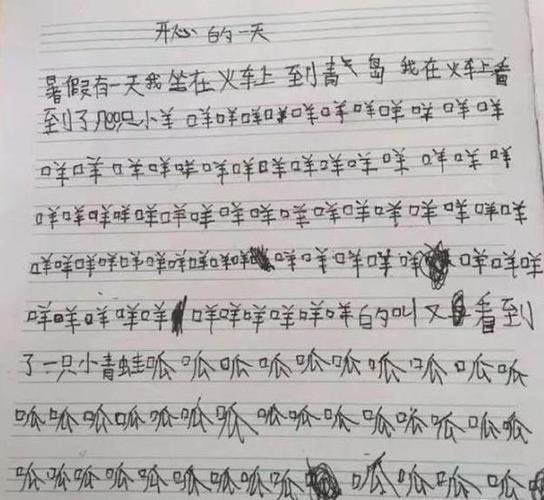 开心的一天
暑假有一天我坐在火车上到青岛我在火车上看
到了几只小羊咩咩咩咩咩咩咩咩咩咩咩咩
咩咩咩咩咩咩咩咩咩咩咩咩咩咩咩
咩咩咩咩咩咩咩咩咩咩咩咩咩咩咩咩咩
咩咩咩咩咩咩咩咩咩咩咩咩咩咩咩咩咩咩
咩咩咩咩咩咩咩咩咩咩咩的叫又看到
了一只小青蛙呱呱呱呱呱呱呱呱呱呱
呱呱呱呱呱呱呱呱呱呱呱呱呱呱呱
呱呱呱呱呱呱呱呱呱呱呱呱呱